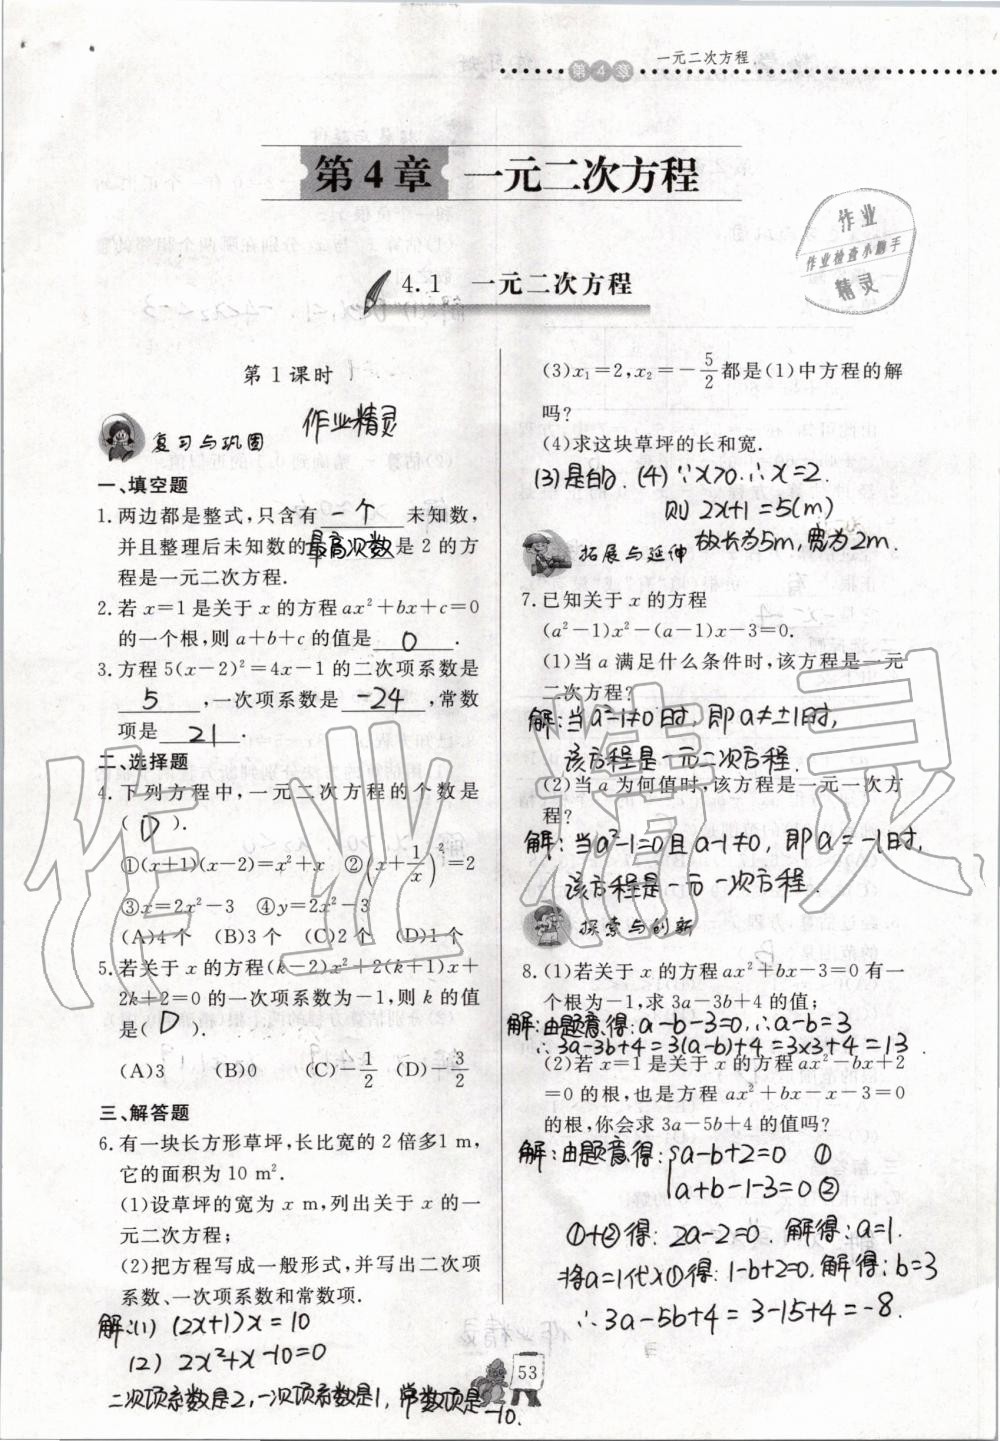 第4章 一元二次方程
第4章 一元二次方程
4.1 一元二次方程
作业
作业检查小助手
精灵
第1课时
作业精灵
复习与巩固
一、填空题
1.两边都是整式,只含有 一个 未知数,
并且整理后未知数的 最高次数 是2的方
程是一元二次方程.
2.若x=1是关于x的方程ax²+bx+c=0
的一个根,则a+b+c的值是 0 .
3.方程5(x-2)²=4x-1的二次项系数是
5 ,一次项系数是 -24 ,常数
项是 21 .
二、选择题
4.下列方程中,一元二次方程的个数是
( D ).
①(x+1)(x-2)=x²+x ②(x+1/x)²=2
③x=2x²-3 ④y=2x²-3
(A)4个 (B)3个 (C)2个 (D)1个
5.若关于x的方程(k-2)x²+2(k+1)x+
2k+2=0的一次项系数为-1,则k的值
是( D ).
(A)3 (B)0 (C)-1/2 (D)-3/2
三、解答题
6.有一块长方形草坪,长比宽的2倍多1 m,
它的面积为10 m².
(1)设草坪的宽为x m,列出关于x的一
元二次方程;
(2)把方程写成一般形式,并写出二次项
系数、一次项系数和常数项.
解:(1) (2x+1)x=10
(2) 2x²+x-10=0
二次项系数是2,一次项系数是1,常数项是-10.
(3)x₁=2,x₂=-5/2都是(1)中方程的解
吗?
(4)求这块草坪的长和宽.
(3)是的. (4)∵x>0.∴x=2.
则 2x+1=5(m)
故长为5m,宽为2m.
拓展与延伸
7.已知关于x的方程
(a²-1)x²-(a-1)x-3=0.
(1)当a满足什么条件时,该方程是一元
二次方程?
解:当a²-1≠0时,即a≠±1时,
该方程是一元二次方程.
(2)当a为何值时,该方程是一元一次方
程?
解:当a²-1=0且a-1≠0,即a=-1时,
该方程是一元一次方程.
探索与创新
8.(1)若关于x的方程ax²+bx-3=0有一
个根为-1,求3a-3b+4的值;
解:由题意得:a-b-3=0,∴a-b=3
∴3a-3b+4=3(a-b)+4=3×3+4=13.
(2)若x=1是关于x的方程ax²-bx+2
=0的根,也是方程ax²+bx-x-3=0
的根,你会求3a-5b+4的值吗?
解:由题意得:{a-b+2=0 ①
a+b-1-3=0 ②
①+②得:2a-2=0.解得:a=1.
将a=1代入①得:1-b+2=0.解得:b=3
∴3a-5b+4=3-15+4=-8.
53
作业精灵